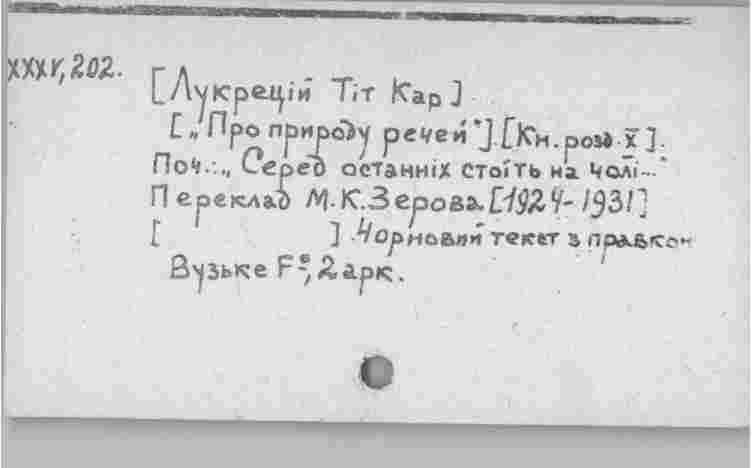 XXXV, 202.
[Лукрецій Тіт Кар].
[„Про природу речей"] [Кн. розд. X].
Поч.: „Серед останніх стоїть на чолі..."
Переклад М.К. Зерова [1924-1931]
[ ] Чорновий текст з правкою
Вузьке F°, 2 арк.